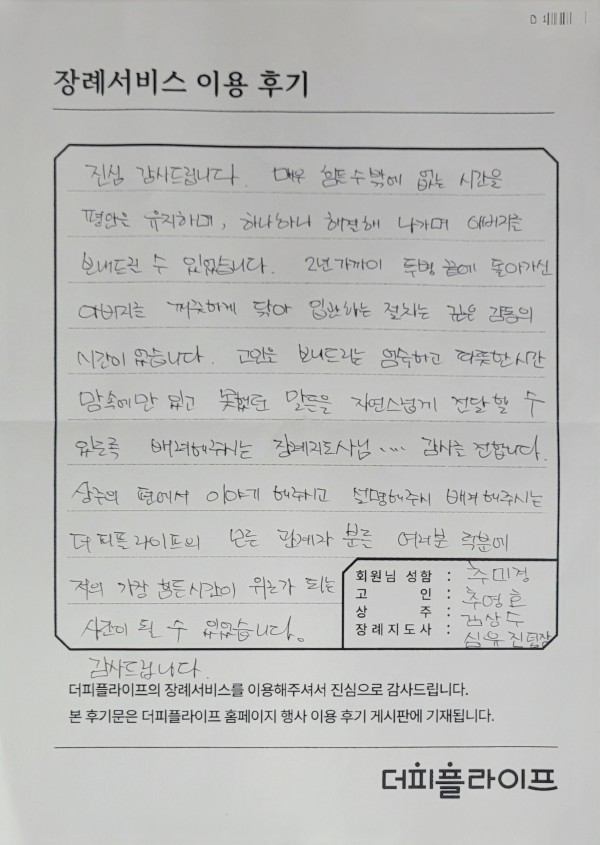 장례서비스 이용 후기
진심 감사드립니다. 매우 힘든 수 밖에 없는 시간을
평안을 유지하며, 하나하나 해결해 나가며 아버지를
보내드릴 수 있었습니다. 2년 가까이 투병 끝에 돌아가신
아버지를 깨끗하게 닦아 입관하는 절차는 깊은 감동의
시간이 었습니다. 고인을 보내드리는 엄숙하고 따뜻한 시간
맘속에만 있고 못했던 말들을 자연스럽게 전달할 수
있도록 배려해주시는 장례지도사님.... 감사를 전합니다.
상주의 편에서 이야기 해주시고 설명해주시 배려해주시는
더피플라이프의 모든 관계자 분들 여러분 덕분에
저의 가장 힘든시간이 위로가 되는
시간이 될 수 있었습니다.
감사드립니다.
회원님 성함 : 추미정
고 인 : 추영호
상 주 : 김상수
장례지도사 : 심유진팀장
더피플라이프의 장례서비스를 이용해주셔서 진심으로 감사드립니다.
본 후기문은 더피플라이프 홈페이지 행사 이용 후기 게시판에 기재됩니다.
더피플라이프